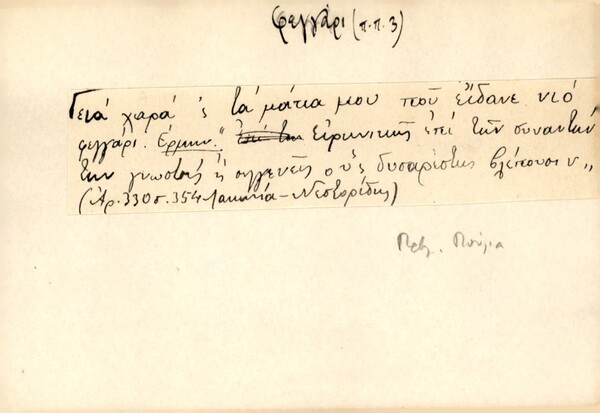 φεγγάρι (π.π. 3)
Γειά χαρά 'ς τά μάτια μου ποῦ εἴδανε νιό
φεγγάρι. Ἑρμην." Εἰρωνικῶς ἐπί τῶν συναντών
των γνωστούς ἤ συγγενεῖς οὕς δυσαρέστως βλέπουσιν „
(Ἀρ. 330 σ. 354 Λακωνία - Νεστορίδης)
Πρβ.